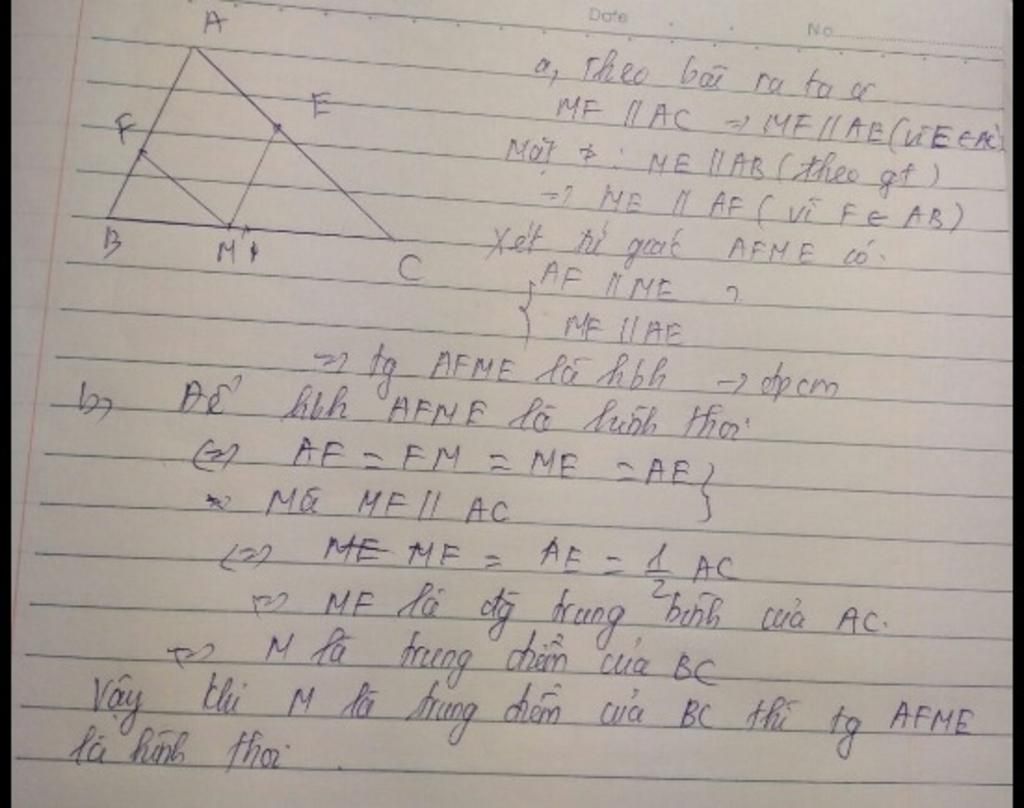 Date No
A
E
F
B
M
C
a, Theo bài ra ta có
MF // AC => MF // AE (vì E ∈ AC)
Mặt ≠: ME // AB (theo gt)
=> ME // AF (vì F ∈ AB)
Xét tứ giác AFME có.
{ AF // ME
MF // AE
=> tg AFME là hbh -> đpcm
b, Để hbh AFME là hình thoi
<=> AF = FM = ME = AE }
Mà MF // AC
<=> ME MF = AE = 1/2 AC
=> MF là đg trung bình của AC.
=> M là trung điểm của BC
Vậy khi M là trung điểm của BC thì tg AFME
là hình thoi.